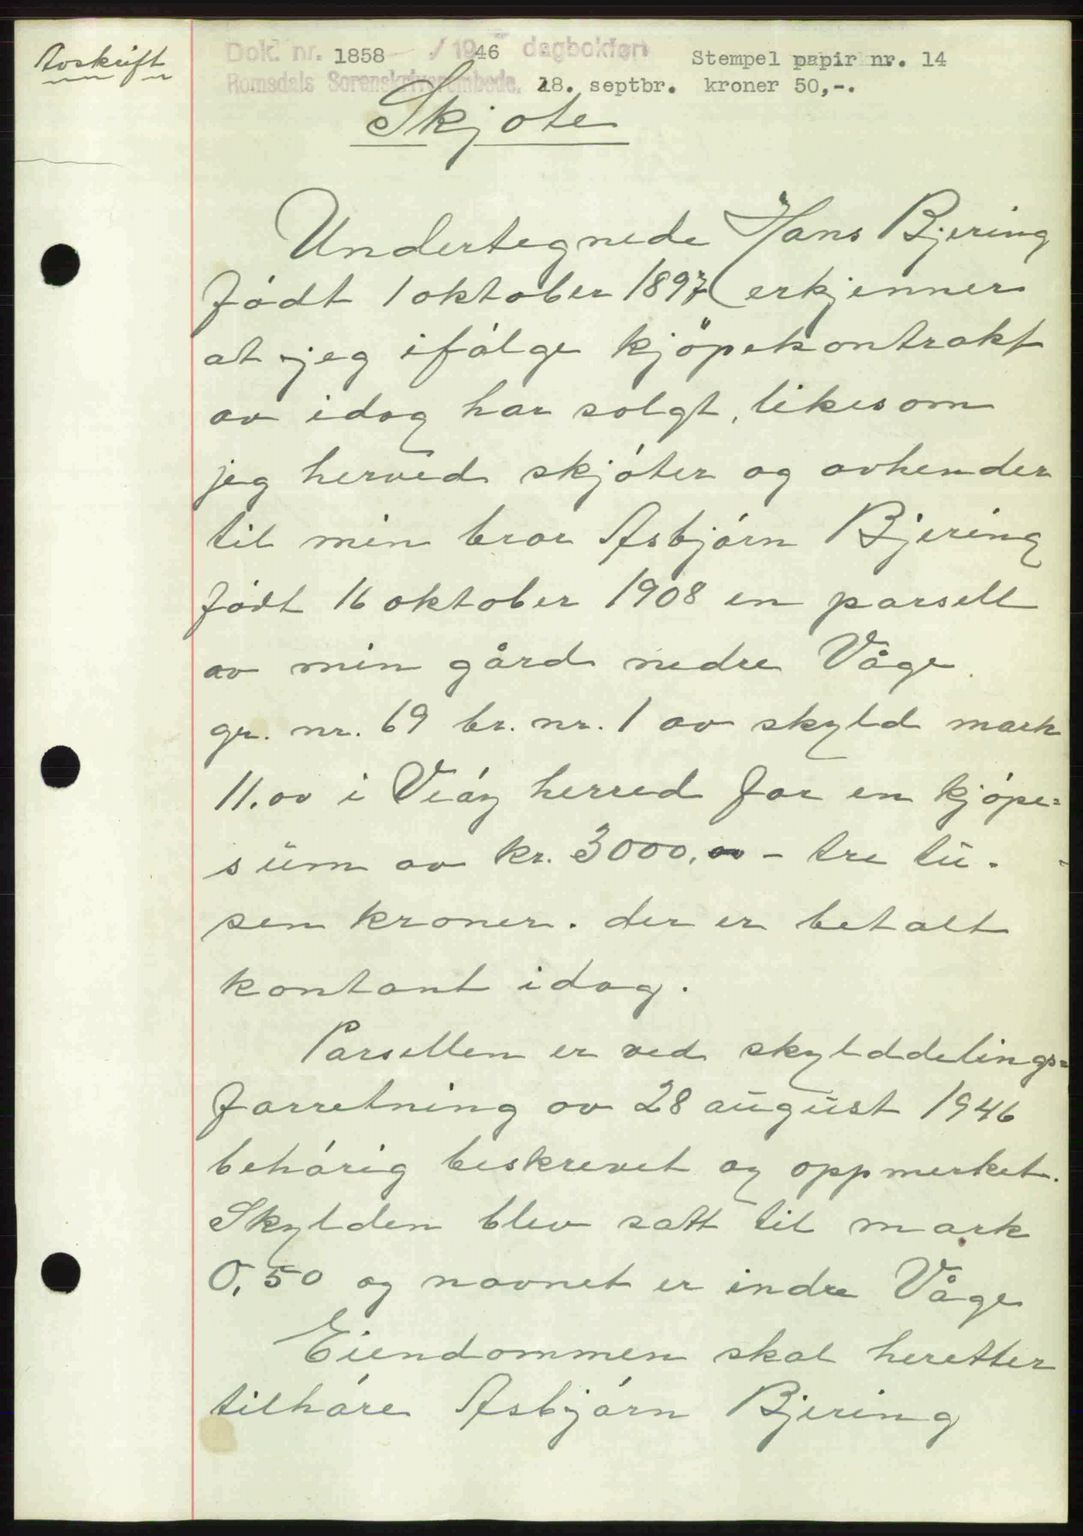 Avskrift
Dok. nr. 1858 / 1946 dagbokført
Stempel papir nr. 14
Romsdals Sorenskriverembede, 18. septbr. kroner 50,-.
Skjöte
Undertegnede Hans Bjering
födt 1 oktober 1897 erkjenner
at jeg ifölge kjöpekontrakt
av idag har solgt, likesom
jeg herved skjöter og avhender
til min bror Asbjörn Bjering
födt 16 oktober 1908 en parsell
av min gård nedre Våge
gr. nr. 69 br. nr. 1 av skyld mark
11.00 i Veöy herred for en kjöpe=
sum av kr. 3000,00 - tre tu-
sen kroner. der er betalt
kontant idag.
Parsellen er ved skylddelings=
forretning av 28 august 1946
behörig beskrevet og oppmerket.
Skylden blev satt til mark
0,50 og navnet er indre Våge
Eiendommen skal heretter
tilhöre Asbjörn Bjering